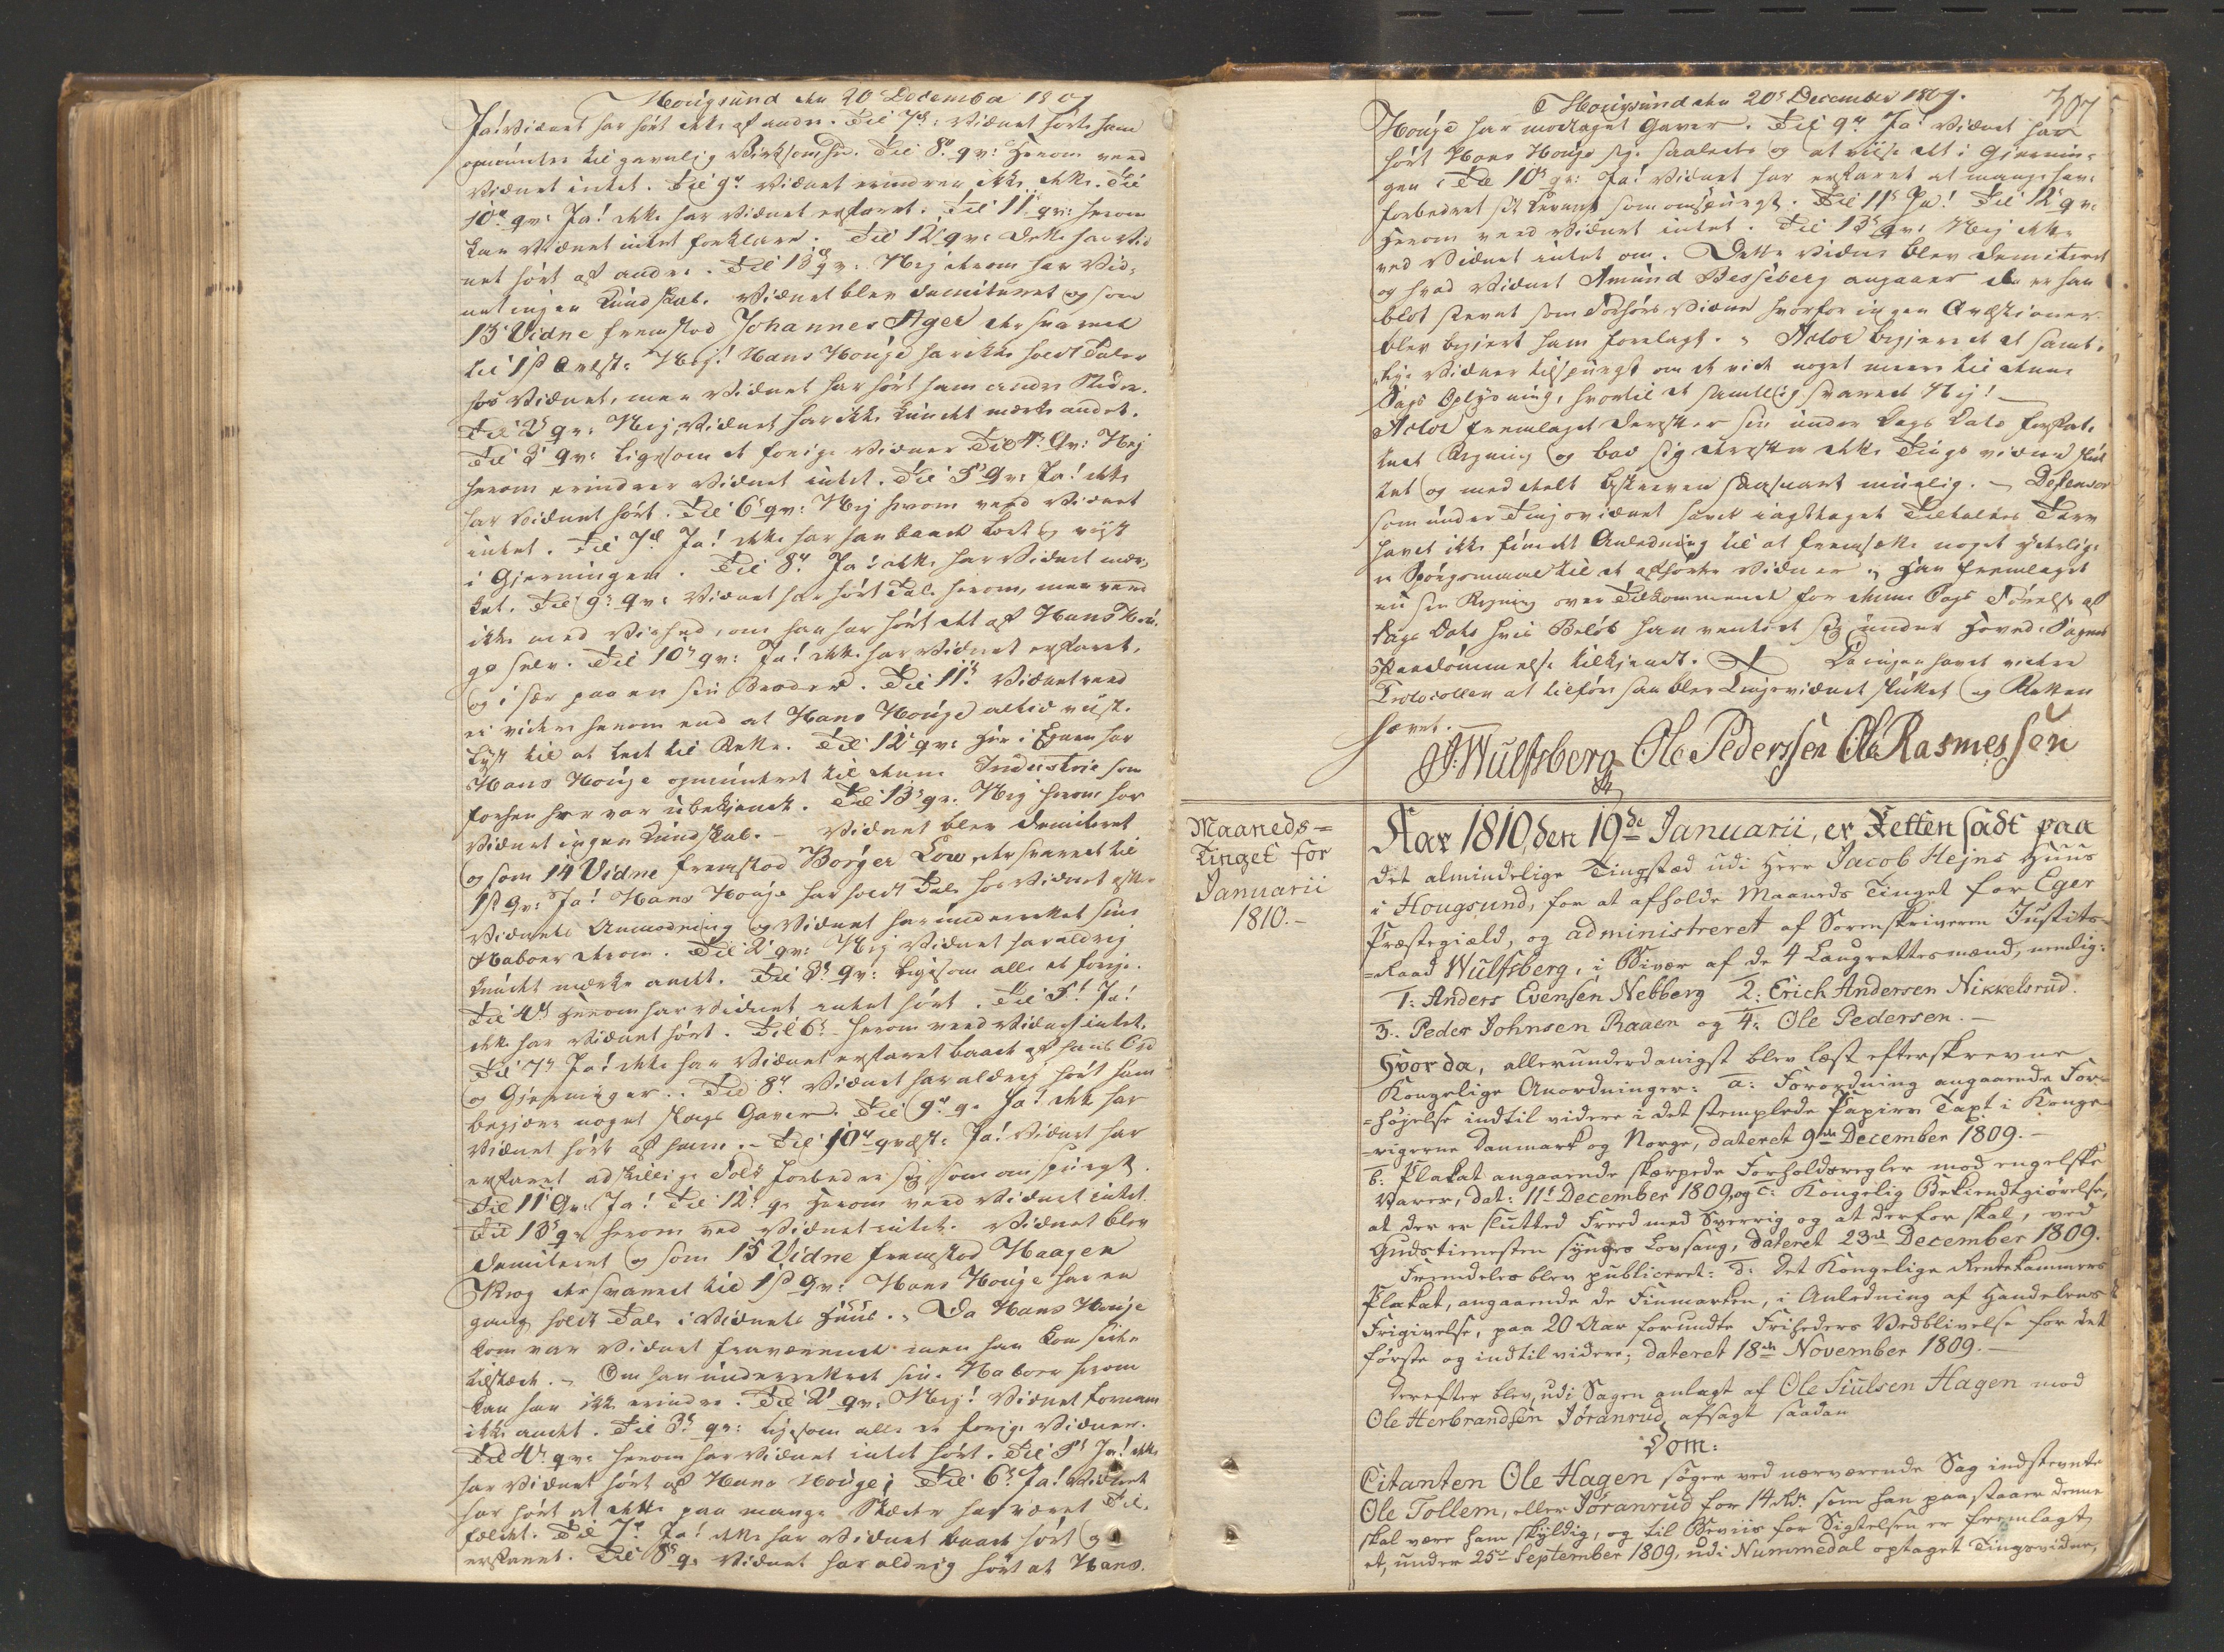 Hougsund den 20 December 1809
Ja! Vidnet har hørt dette af andre. Til 7de: Vidnet hørte ham
opmuntre til gavnlig Virksomhed. Til 8de qv: Herom veed
Vidnet intet. Til 9de Vidnet erindrer ikke dette. Til
10de qv: Ja! dette har Vidnet erfaret. Til 11 qv: herom
kan Vidnet intet forklare. Til 12 qv: Dette har Vid
net hørt af andre. Til 13de qv: Nej derom har Vid-
net ingen Kundskab. Vidnet blev demitteret og som
13 Vidne fremstod Johannes Ager der svarede
til 1ste Qvest: Nej! Hans Houge har ikke holdt Taler
hos Vidnet, men Vidnet har hørt ham andre Stæder.
Til 2 qv: Nej, Vidnet har ikke kundet mærke andet.
Til 3 qv: Ligesom de forrige Vidner Til 4 Qv: Nej
herom erindrer Vidnet intet. Til 5 Qv: Ja! dette
har Vidnet hørt. Til 6 qv: Nej herom veed Vidnet
intet. Til 7de Ja! dette har han baade lært og viist
i Gjerningen. Til 8de Ja! dette har Vidnet mær-
ket. Til 9 qv: Vidnet har hørt Tale herom, men veed
ikke med Vished, om han har hørt det af Hans Hou-
ge selv. Til 10 qv: Ja! dette har Vidnet erfaret,
og i sær paa en sin Broder. Til 11te Vidnet veed
ei videre herom end at Hans Houge altid viiste
Lyst til at lede til Rette. Til 12 qv: Her i Egnen har
Hans Houge opmuntret til denne Industrie som
forhen her var ubekjendt. Til 13 qv: Nej herom har
Vidnet ingen Kundskab. – Vidnet blev demitteret
og som 14 Vidne fremstod Børger Low, der svarede til
1ste Qv: Ja! Hans Houge har holdt Tale hos Vidnet efter
Vidnets Anmodning og Vidnet har underrettet sine
Naboer derom. Til 2 qv: Nej Vidnet har aldrig
kundet mærke andet. Til 3 qv: Ligesom alle de forrige.
Til 4de Herom har Vidnet intet hørt. Til 5te Ja!
dette har Vidnet hørt. Til 6te herom veed Vidnet intet.
Til 7de Ja! dette har Vidnet erfaret baade af hans Ord
og Gjerninger. Til 8de Vidnet har aldrig hørt ham
begjære noget slags Gaver. Til 9de q. Ja! dette har
Vidnet hørt af ham. – Til 10de qvest: Ja! Vidnet har
erfaret adskillige Folk forbedre sig som omspurgt.
Til 11 Qv: Ja! Til 12 q. Herom veed Vidnet intet.
Til 13 q. herom ved Vidnet intet. Vidnet blev
demitteret og som 15 Vidne fremstod Haagen
Skog der svarede til 1ste Qv: Hans Houge har en
gang holdt Tale i Vidnets Huus. Da Hans Houge
kom var Vidnet fraværende men han kom siden
tilstæde. – Om han underrettede sine Naboer herom
kan han ikke erindre. Til 2 qv: Nej! Vidnet fornam
ikke andet. Til 3 qv: ligesom alle de forrige Vidner.
Til 4 qv: herom har Vidnet intet hørt. Til 5te Ja! dette
har Vidnet hørt af Hans Houge; Til 6te Ja! Vidnet
har hørt at dette paa mange Stæder har været Til-
fældet. Til 7de Ja! dette har Vidnet baade hørt og
erfaret. Til 8 q. Vidnet har aldrig hørt at Hans
Hougsund den 20 December 1809.
307
Houge har modtaget Gaver. Til 9de Ja! Vidnet har
hørt Hans Houge sige saaledes og at viise det i Gjernin-
gen. Til 10 qv: Ja! Vidnet har erfaret at mange har
forbedret sit Levnet som omspurgt. Til 11te Ja! Til 12 qv:
Herom veed Vidnet intet. Til 13 qv: Nej dette
ved Vidnet intet om. Dette Vidne blev demitteret
og hvad Vidnet Amund Besseberg angaaer da er han
blot stevnet som Vidne hvorfor ingen Qvæstioner
blev begjert ham forelagt. Actor begjerede at samt-
lige Vidner tilspurgt om de vidste noget meere til denne
Sags Oplysning, hvortil de samtlig svarede Nej! –
Actor fremlagde derefter sin under Dags Dato forfat-
tede Regning og bad sig derefter dette Tingsvidne slut
tet og meddelt beskreven saasnart muelig. – Defensor
som under Tingsvidnet havde iagttaget Tiltaltes Tarv
havde ikke fundet Anledning til at fremsætte noget yderlige-
re Spørgsmaal til de afhørte Vidner. Han fremlagde
nu sin Regning over Tilkommende for denne Sags Førelse af
Dags Dato hvis Beløb han ventede sig under Hoved-Sagens
Paadømmelse tilkjendt. Da ingen havde videre
Protocollen at tilføre saa blev Tingsvidnet sluttet og Retten
hævet.
J: Wulfsberg Ole Pederssen Ole Rasmessen
Maaneds-
Tinget for
Januarii
1810.–
Aar 1810, den 19de Januarii, er Retten sadt paa
det almindelige Tingsted udi Herr Jacob Hejns Huus
i Hougsund, for at afholde Maaneds Tinget for Eger
Præstegiæld, og administreret af Sorenskriveren Justits-
=Raad Wulfsberg, i Bivær af de 4 Laugrettesmænd, nemlig:
1: Anders Evensen Nebberg 2: Erich Andersen Nikkelsrud.
3. Peder Johnsen Raaen og 4: Ole Pedersen. –
Hvor da, allerunderdanigst blev læst efterskrevne
Kongelige Anordninger: a: Forordning angaaende For-
=højelse indtil videre i det stemplede Papirs Taxt i Konge-
=rigerne Danmark og Norge, dateret 9de December 1809. –
b: Plakat angaaende skærpede Forholdsregler mod engelske
Varer, dat: 11te December 1809, og c: Kongelig Bekiendtgiørelse,
at der er sluttet Freed med Sverrig og at derfor skal, ved
Gudstienesten synges Lovsang, dateret 23de December 1809.
Fremdeles blev publiceret: d: Det Kongelige Rentekammers
Plakat, angaaende de Finmarken, i Anledning af Handelens
Frigivelse, paa 20 Aar forundte Friheders Vedblivelse for det
første og indtil videre; dateret 18de November 1809. –
Derefter blev, udi Sagen anlagt af Ole Siulsen Hagen mod
Ole Herbrandsen Jøranrud, afsagt saadan
Dom:
Citanten Ole Hagen søger ved nærværende Sag indstevnte
Ole Tollem, eller Jøranrud for 14 Rd. som han paastaaer denne
skal være ham skyldig, og til Beviis for Sigtelsen er fremlagt
et, under 25de September 1809, udi Nummedal optaget Tingsvidne,